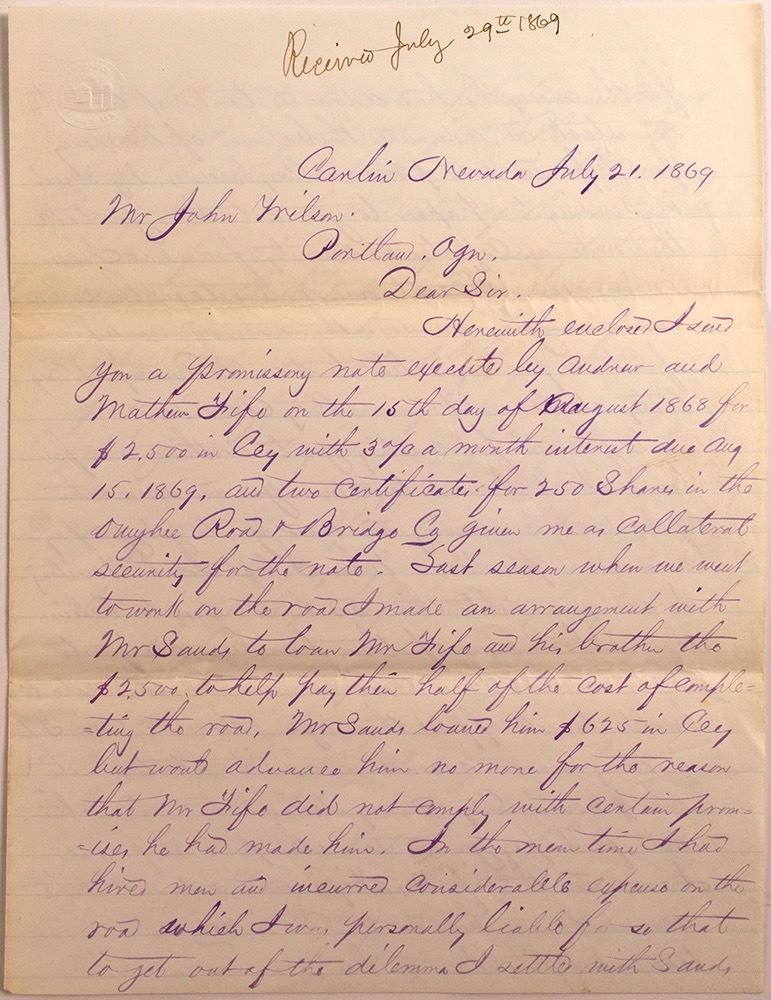 Received July 29th 1869
Carlin Nevada July 21. 1869
Mr John Wilson.
Portland. Ogn.
Dear Sir.
Herewith enclosed I send
you a promissory note executed by Andrew and
Mathew Fife on the 15th day of August 1868 for
$2,500 in Ccy with 3% a month interest due Aug
15. 1869, and two certificates for 250 Shares in the
Owyhee Road & Bridge Co given me as Collateral
security for the note. Last season when we went
to work on the road I made an arrangement with
Mr Sands to loan Mr Fife and his brother the
$2,500. to help pay their half of the cost of comple=
=ting the road, Mr Sands loaned him $625 in Ccy
but would advance him no more for the reason
that Mr Fife did not comply with certain prom=
=ises he had made him. In the mean time I had
hired men and incurred considerable expense on the
road which I was personally liable for so that
to get out of the dilemma I settled with Sands